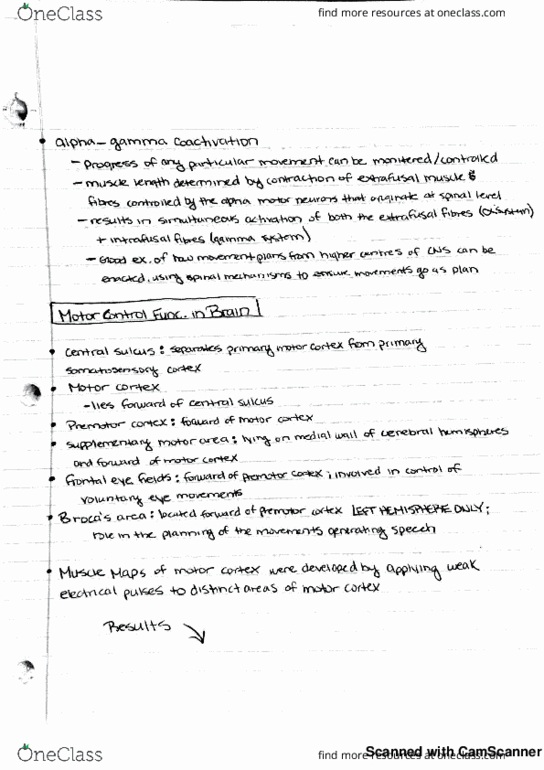 OneClass
find more resources at oneclass.com
alpha-gamma coactivation
- Progress of any particular movement can be monitered/controlled
- muscle length determined by contraction of extrafusal muscle
fibres controlled by the alpha motor neurons that originate at spinal level
- results in simultaneous activation of both the extrafusal fibres (α system)
+ intrafusal fibres (gamma system)
- Good ex. of how movement plans from higher centres of CNS can be
enacted, using spinal mechanisms to ensure movements go as plan
Motor Control Func. in Brain
• central sulcus : separates primary motor cortex from primary
somatosensory cortex
• Motor cortex
- lies forward of central sulcus
• Premotor cortex : forward of motor cortex
• supplementary motor area : lying on medial wall of cerebral hemispheres
and forward of motor cortex
• frontal eye fields : forward of premotor cortex ; involved in control of
voluntary eye movements
• Broca's area : located forward of premotor cortex LEFT HEMISPHERE ONLY ;
role in the planning of the movements generating speech
• Muscle Maps of motor cortex were developed by applying weak
electrical pulses to distinct areas of motor cortex
Results
OneClass
find more resources at oneclass.com
Scanned with CamScanner